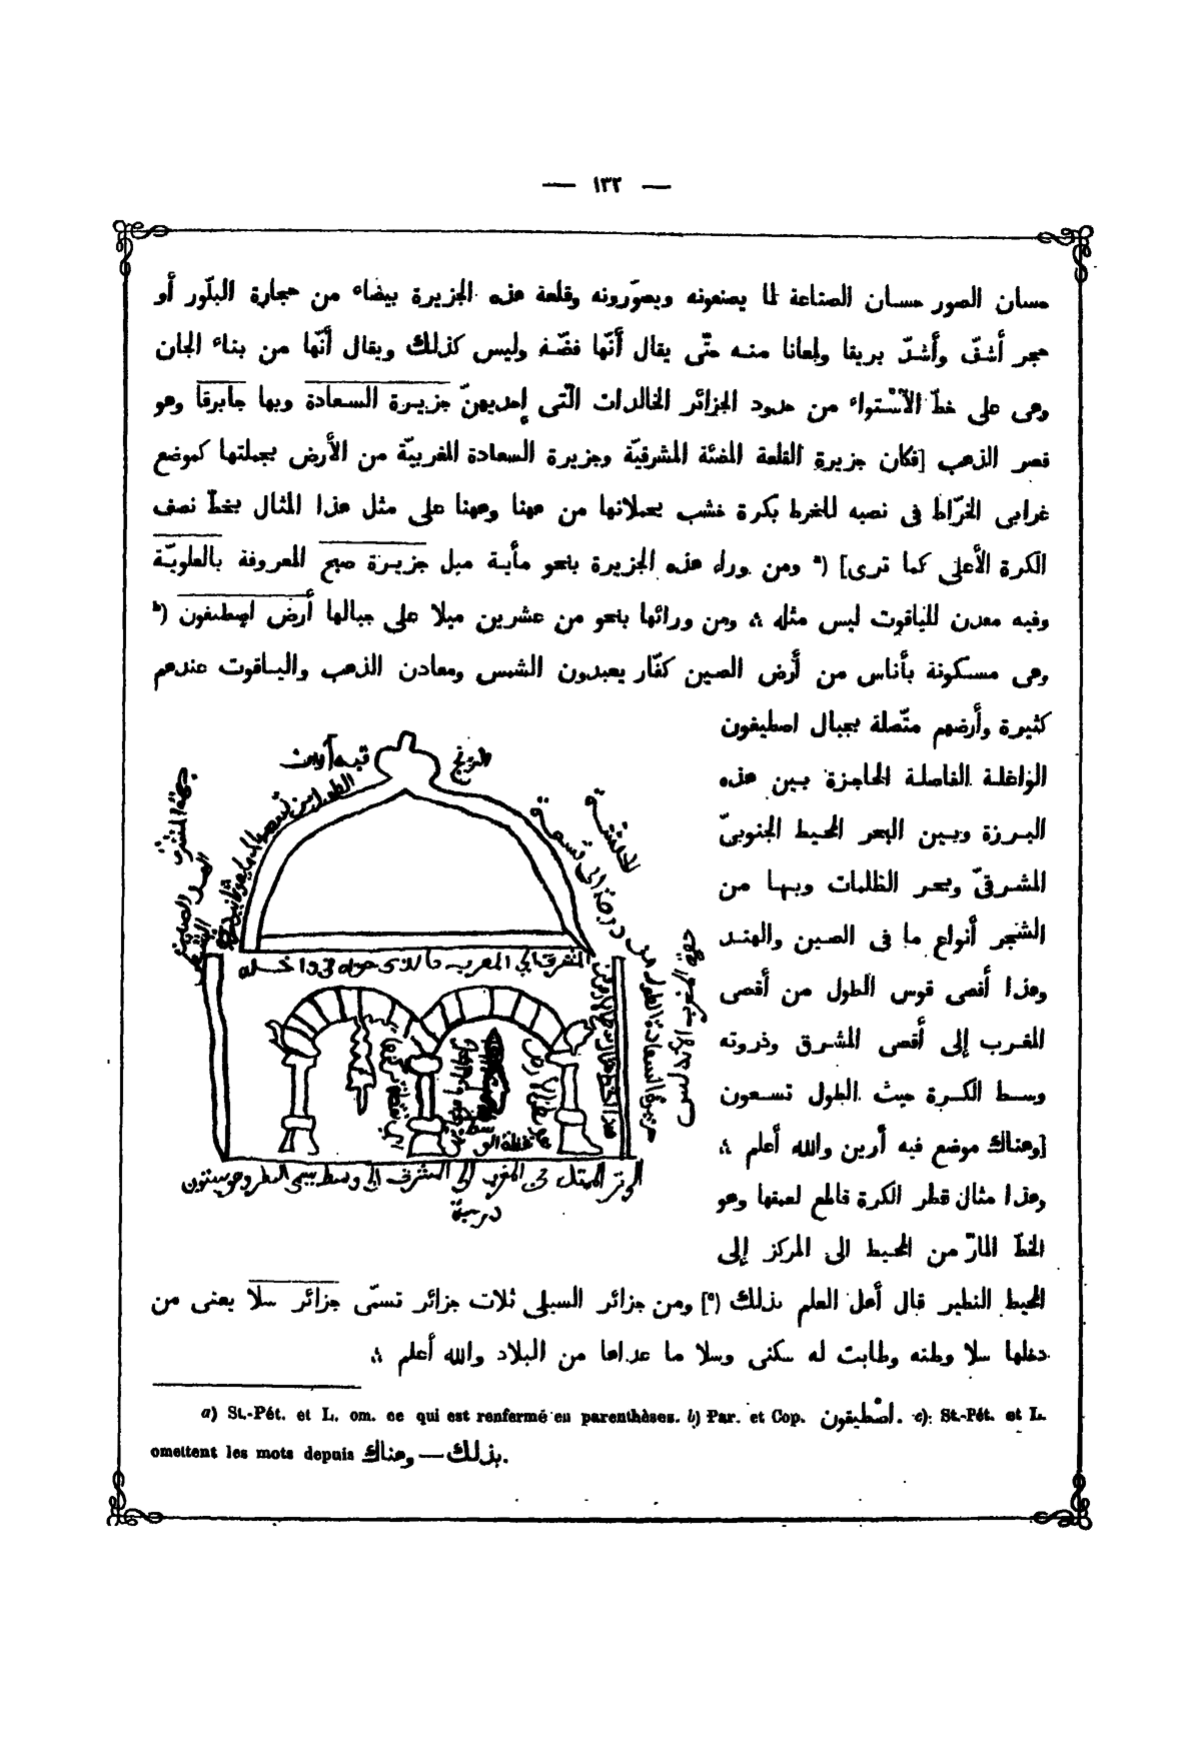 — ١٣٢ —
حسان الصور حسان الصناعة لما يصنعونه ويصوّرونه وقلعة هذه الجزيرة بيضاء من حجارة البلّور أو
حجر أشفّ وأشدّ بريقا ولمعانا منه حتّى يقال أنّها فضّة وليس كذلك ويقال أنّها من بناء الجان
وهى على خطّ الآسْتواء من حدود الجزائر الخالدات الّتى إحديهنّ جزيرة السعادة وبها جابرقا وهو
قصر الذهب [فكان جزيرة القلعة المضئة المشرقيّة وجزيرة السعادة المغربيّة من الأرض بجملتها كموضع
غرابى الخرّاط فى نصبه للخرط بكرة خشب يحملانها من هنا وهنا على مثل هذا المثال بخطّ نصف
الكرة الأعلى كما ترى] (a ومن وراء هذه الجزيرة بنحو مأية ميل جزيرة صبح المعروفة بالعلويّة
وفيه معدن للياقوت ليس مثله ؞ ومن ورائها بنحو من عشرين ميلا على جبالها أرض اصطيفون (b
وهى مسكونة بأناس من أرض الصين كفّار يعبدون الشمس ومعادن الذهب والياقوت عندهم
كثيرة وأرضهم متّصلة بجبال اصطيفون
الواغلة الفاصلة الحاجزة بين هذه
البرزة وبين البحر المحيط الجنوبىّ
المشرقىّ وبحر الظلمات وبها من
الشجر أنواع ما فى الصين والهند
وهذا أقصى قوس الطول من أقصى
المغرب إلى أقصى المشرق وذروته
وسط الكرة حيث الطول تسعون
[وهناك موضع قبه أرين والله أعلم ؞
وهذا مثال قطر الكرة قاطع لعمقها وهو
الخطّ المارّ من المحيط الى المركز إلى
المحيط النظير قال أهل العلم بذلك (c] ومن جزائر السيلى ثلاث جزائر تسمّى جزائر سلا يعنى من
دخلها سلا وطنه وطابت له سكنى وسلا ما عداها من البلاد والله أعلم ؞
قبه أرين
جهة المشرق
الوتر الممتد من المغرب إلى المشرق
a) St.-Pét. et L. om. ce qui est renfermé en parenthèses. b) Par. et Cop. اصْطيقون. c): St.-Pét. et L.
omettent les mots depuis وهناك — بذلك.